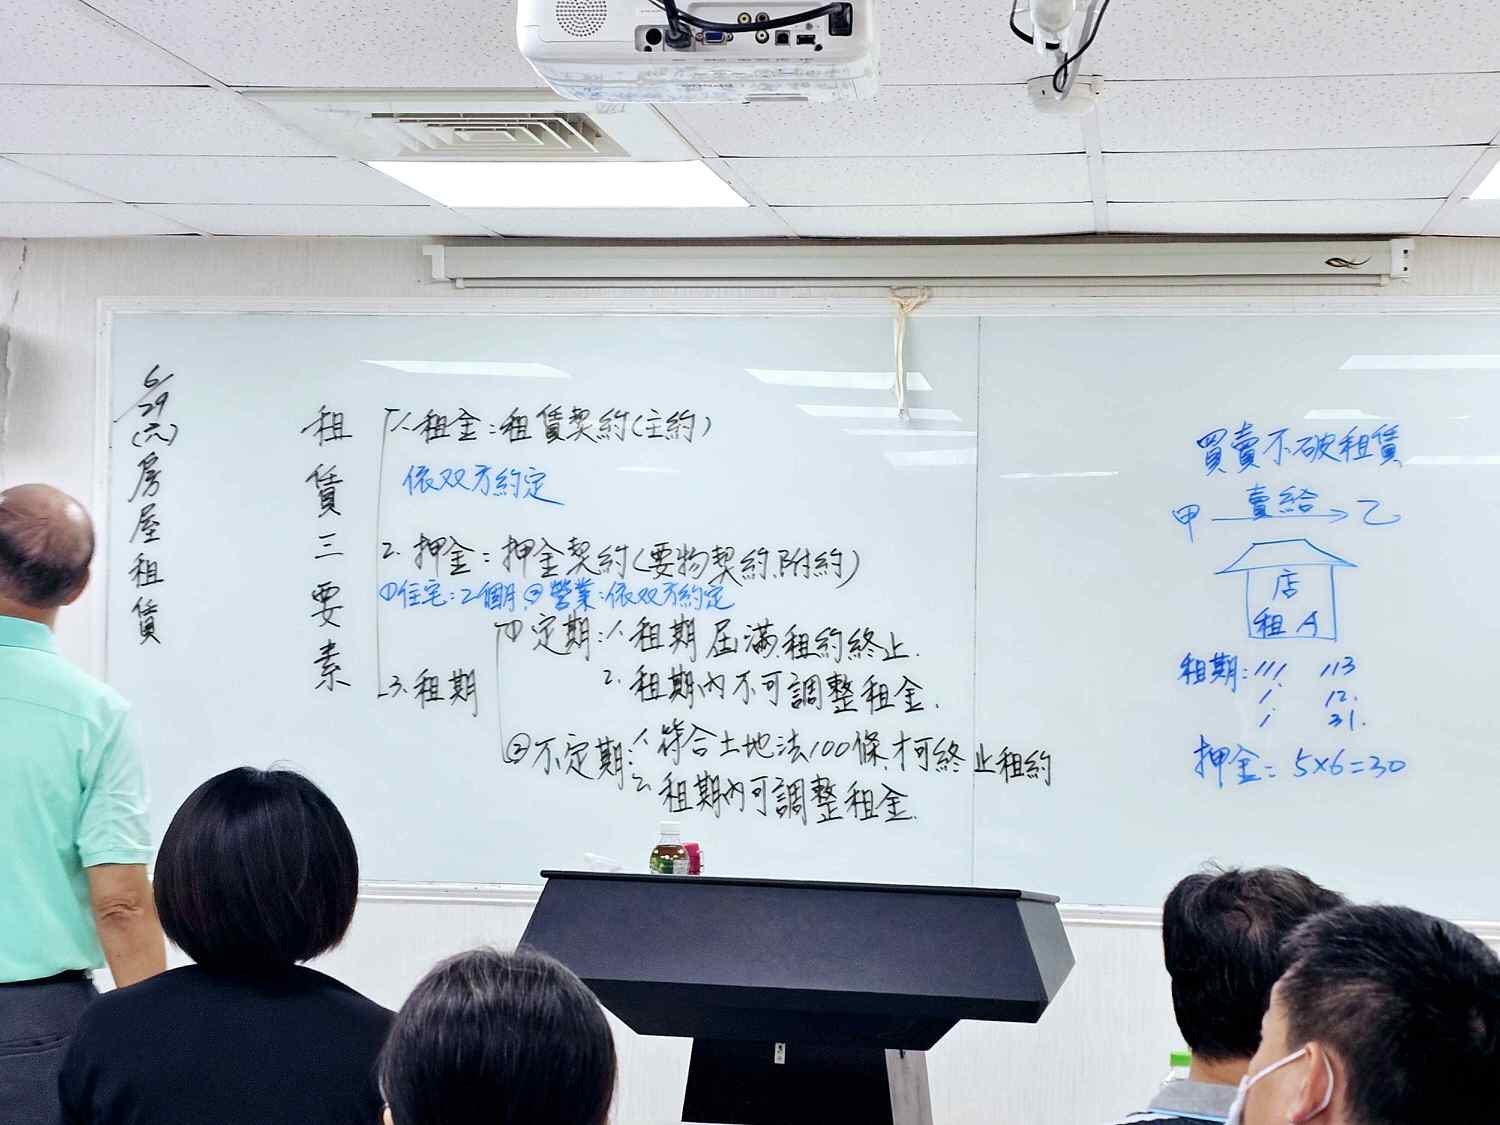 6/29(六)房屋租賃
租賃三要素
1. 租金:租賃契約(主約)
依双方約定
2. 押金:押金契約(要物契約.附約)
①住宅:2個月.②營業:依双方約定
3. 租期
①定期:1. 租期屆滿.租約終止.
2. 租期內不可調整租金.
②不定期:1. 符合土地法100條.才可終止租約
2. 租期內可調整租金.
買賣不破租賃
甲 賣給 乙
店
租 A
租期:111. 113
1. 12.
1 31.
押金:5×6=30